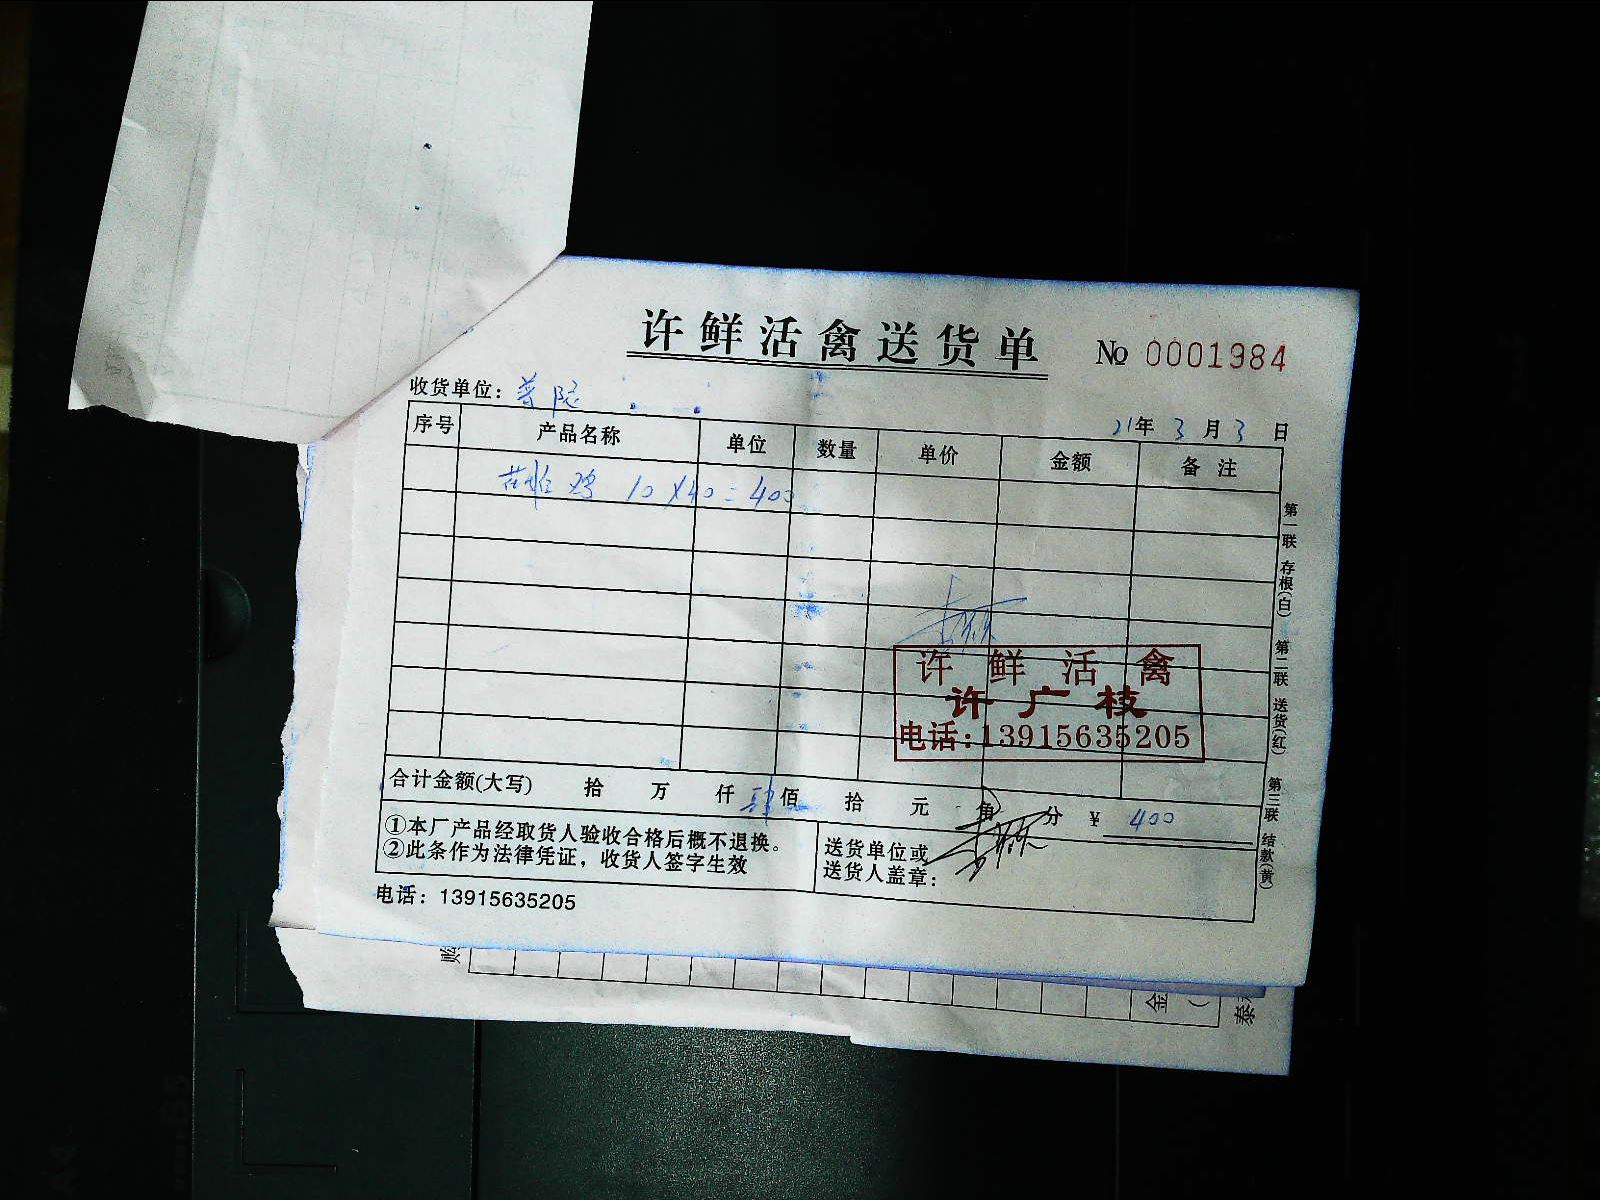 许鲜活禽送货单 No 0001984
收货单位: 普
21年 3月 3日
序号 产品名称 单位 数量 单价 金额 备注
鸡 10×40=400
许鲜活禽
许广枝
电话:13915635205
合计金额(大写) 拾 万 仟 肆佰 拾 元 角 分 ¥ 400
①本厂产品经取货人验收合格后概不退换。
②此条作为法律凭证，收货人签字生效
送货单位或
送货人盖章:
电话: 13915635205
第一联 存根(白) 第二联 送货(红) 第三联 结款(黄)
购
金
泰